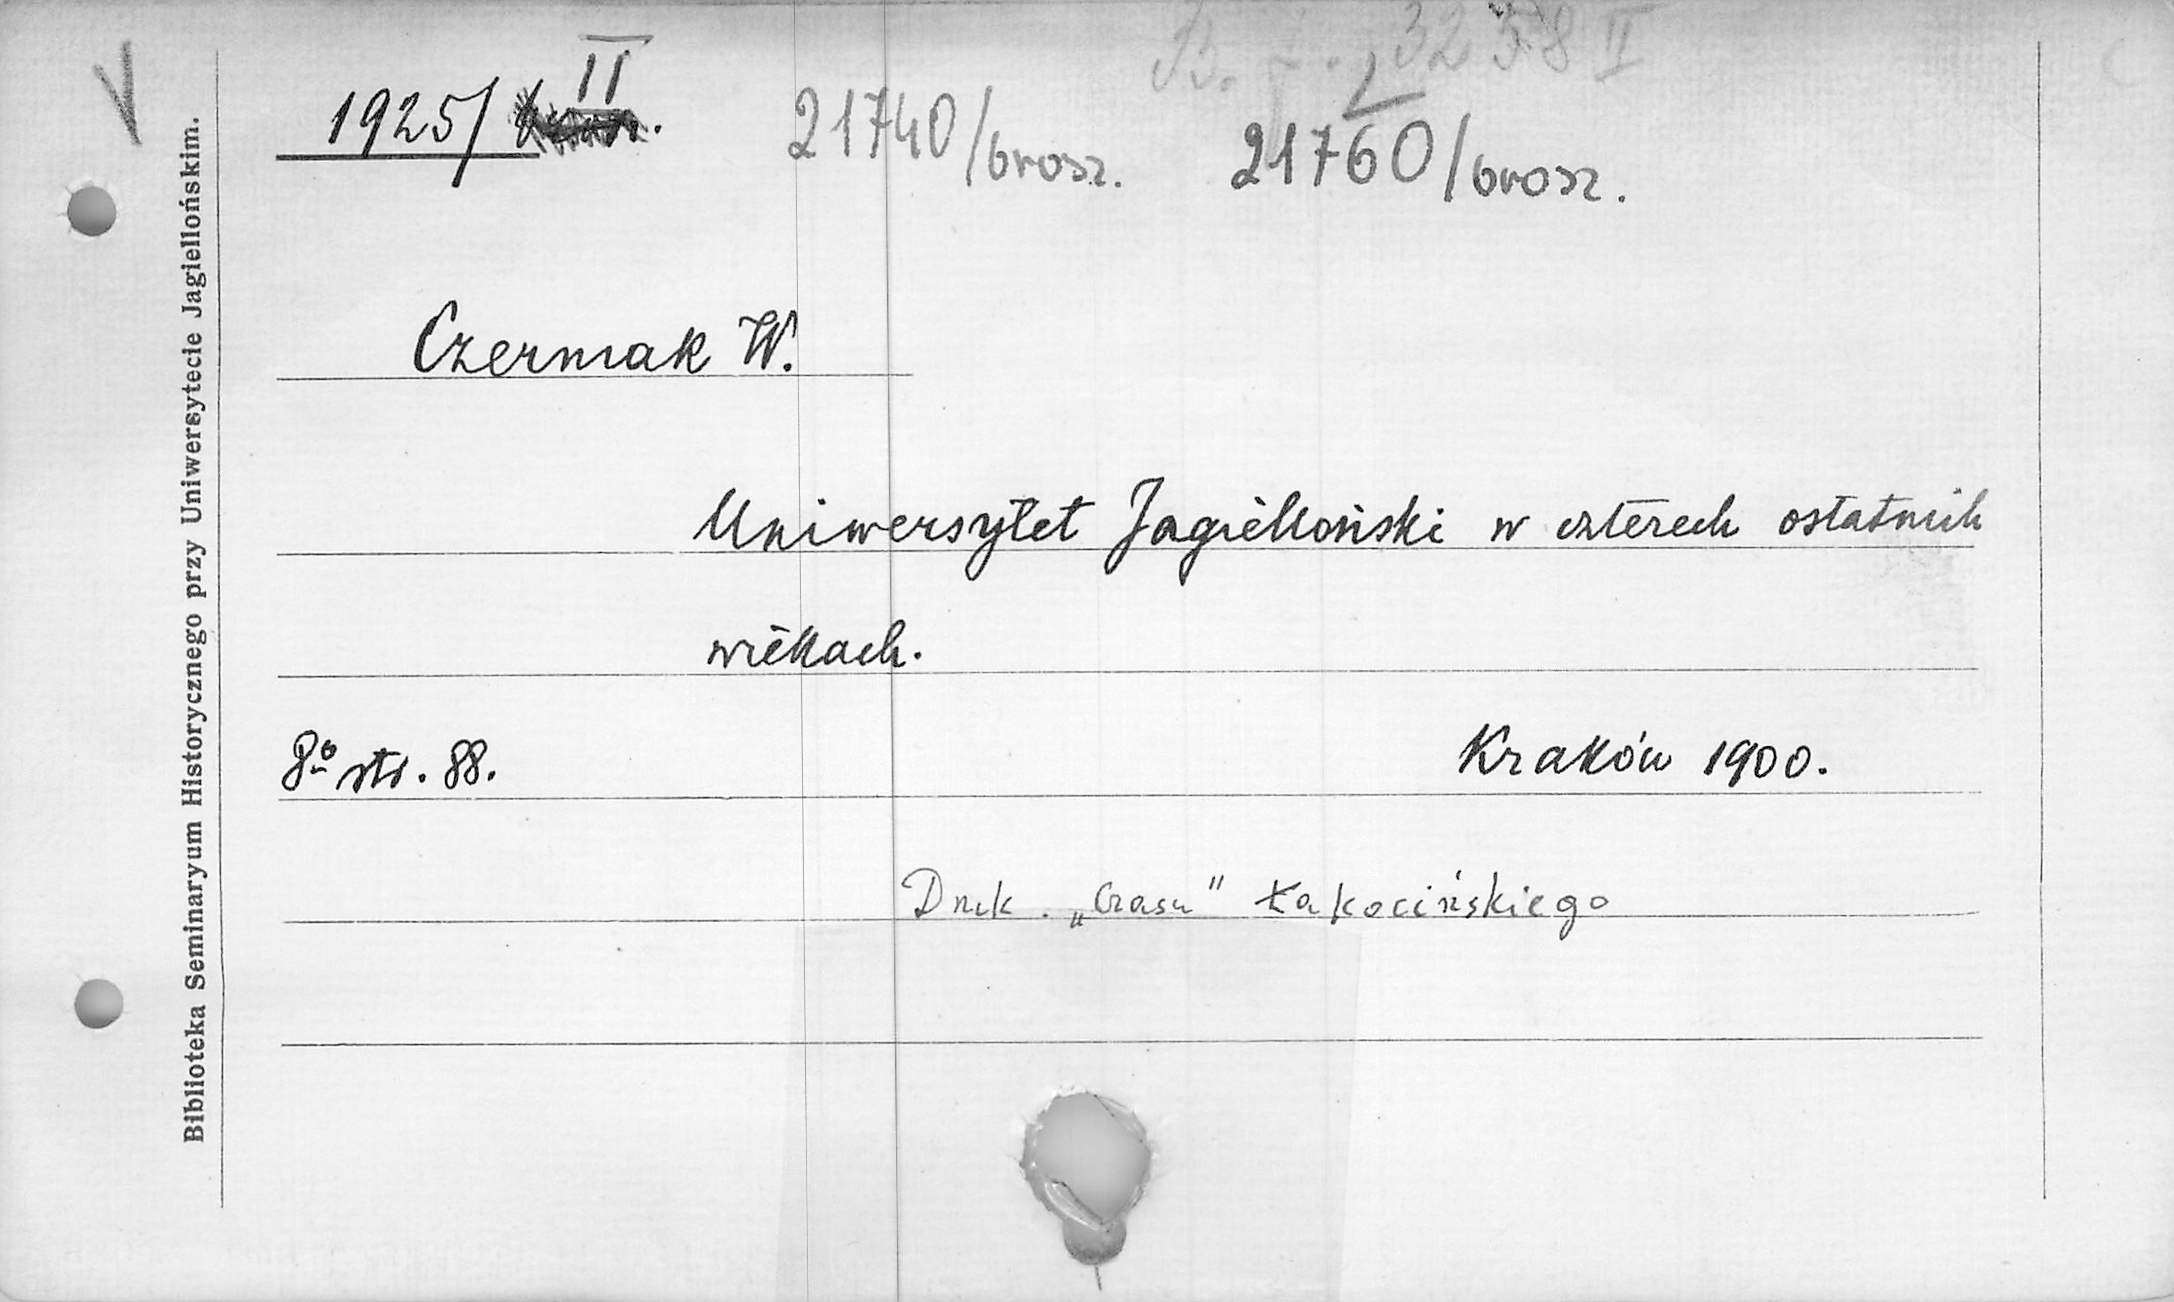 3258 II
1925/ II
21740/brosz. 21760/brosz.
Czermak W.
Uniwersytet Jagielloński w czterech ostatnich
wiekach.
8º str. 88.
Kraków 1900.
Druk. „Czasu" Łakocińskiego
Biblioteka Seminaryum Historycznego przy Uniwersytecie Jagiellońskim.